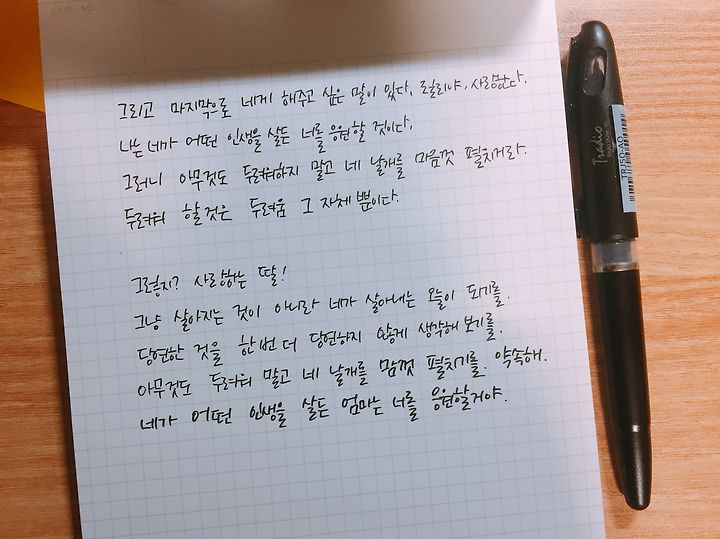 DATE / NO.
그리고 마지막으로 네게 해주고 싶은 말이 있다. 로칠리야, 사랑한다.
나는 네가 어떤 인생을 살든 너를 응원할 것이다.
그러니 아무것도 두려워하지 말고 네 날개를 마음껏 펼치거라.
두려워 할 것은 두려움 그 자체 뿐이다.
그렇지? 사랑하는 딸!
그냥 살아지는 것이 아니라 네가 살아내는 오늘이 되기를.
당연한 것을 한번 더 당연하지 않게 생각해 보기를.
아무것도 두려워 말고 네 날개를 맘껏 펼치기를. 약속해.
네가 어떤 인생을 살든 엄마는 너를 응원할거야.
Tradio
TRJ50-AO